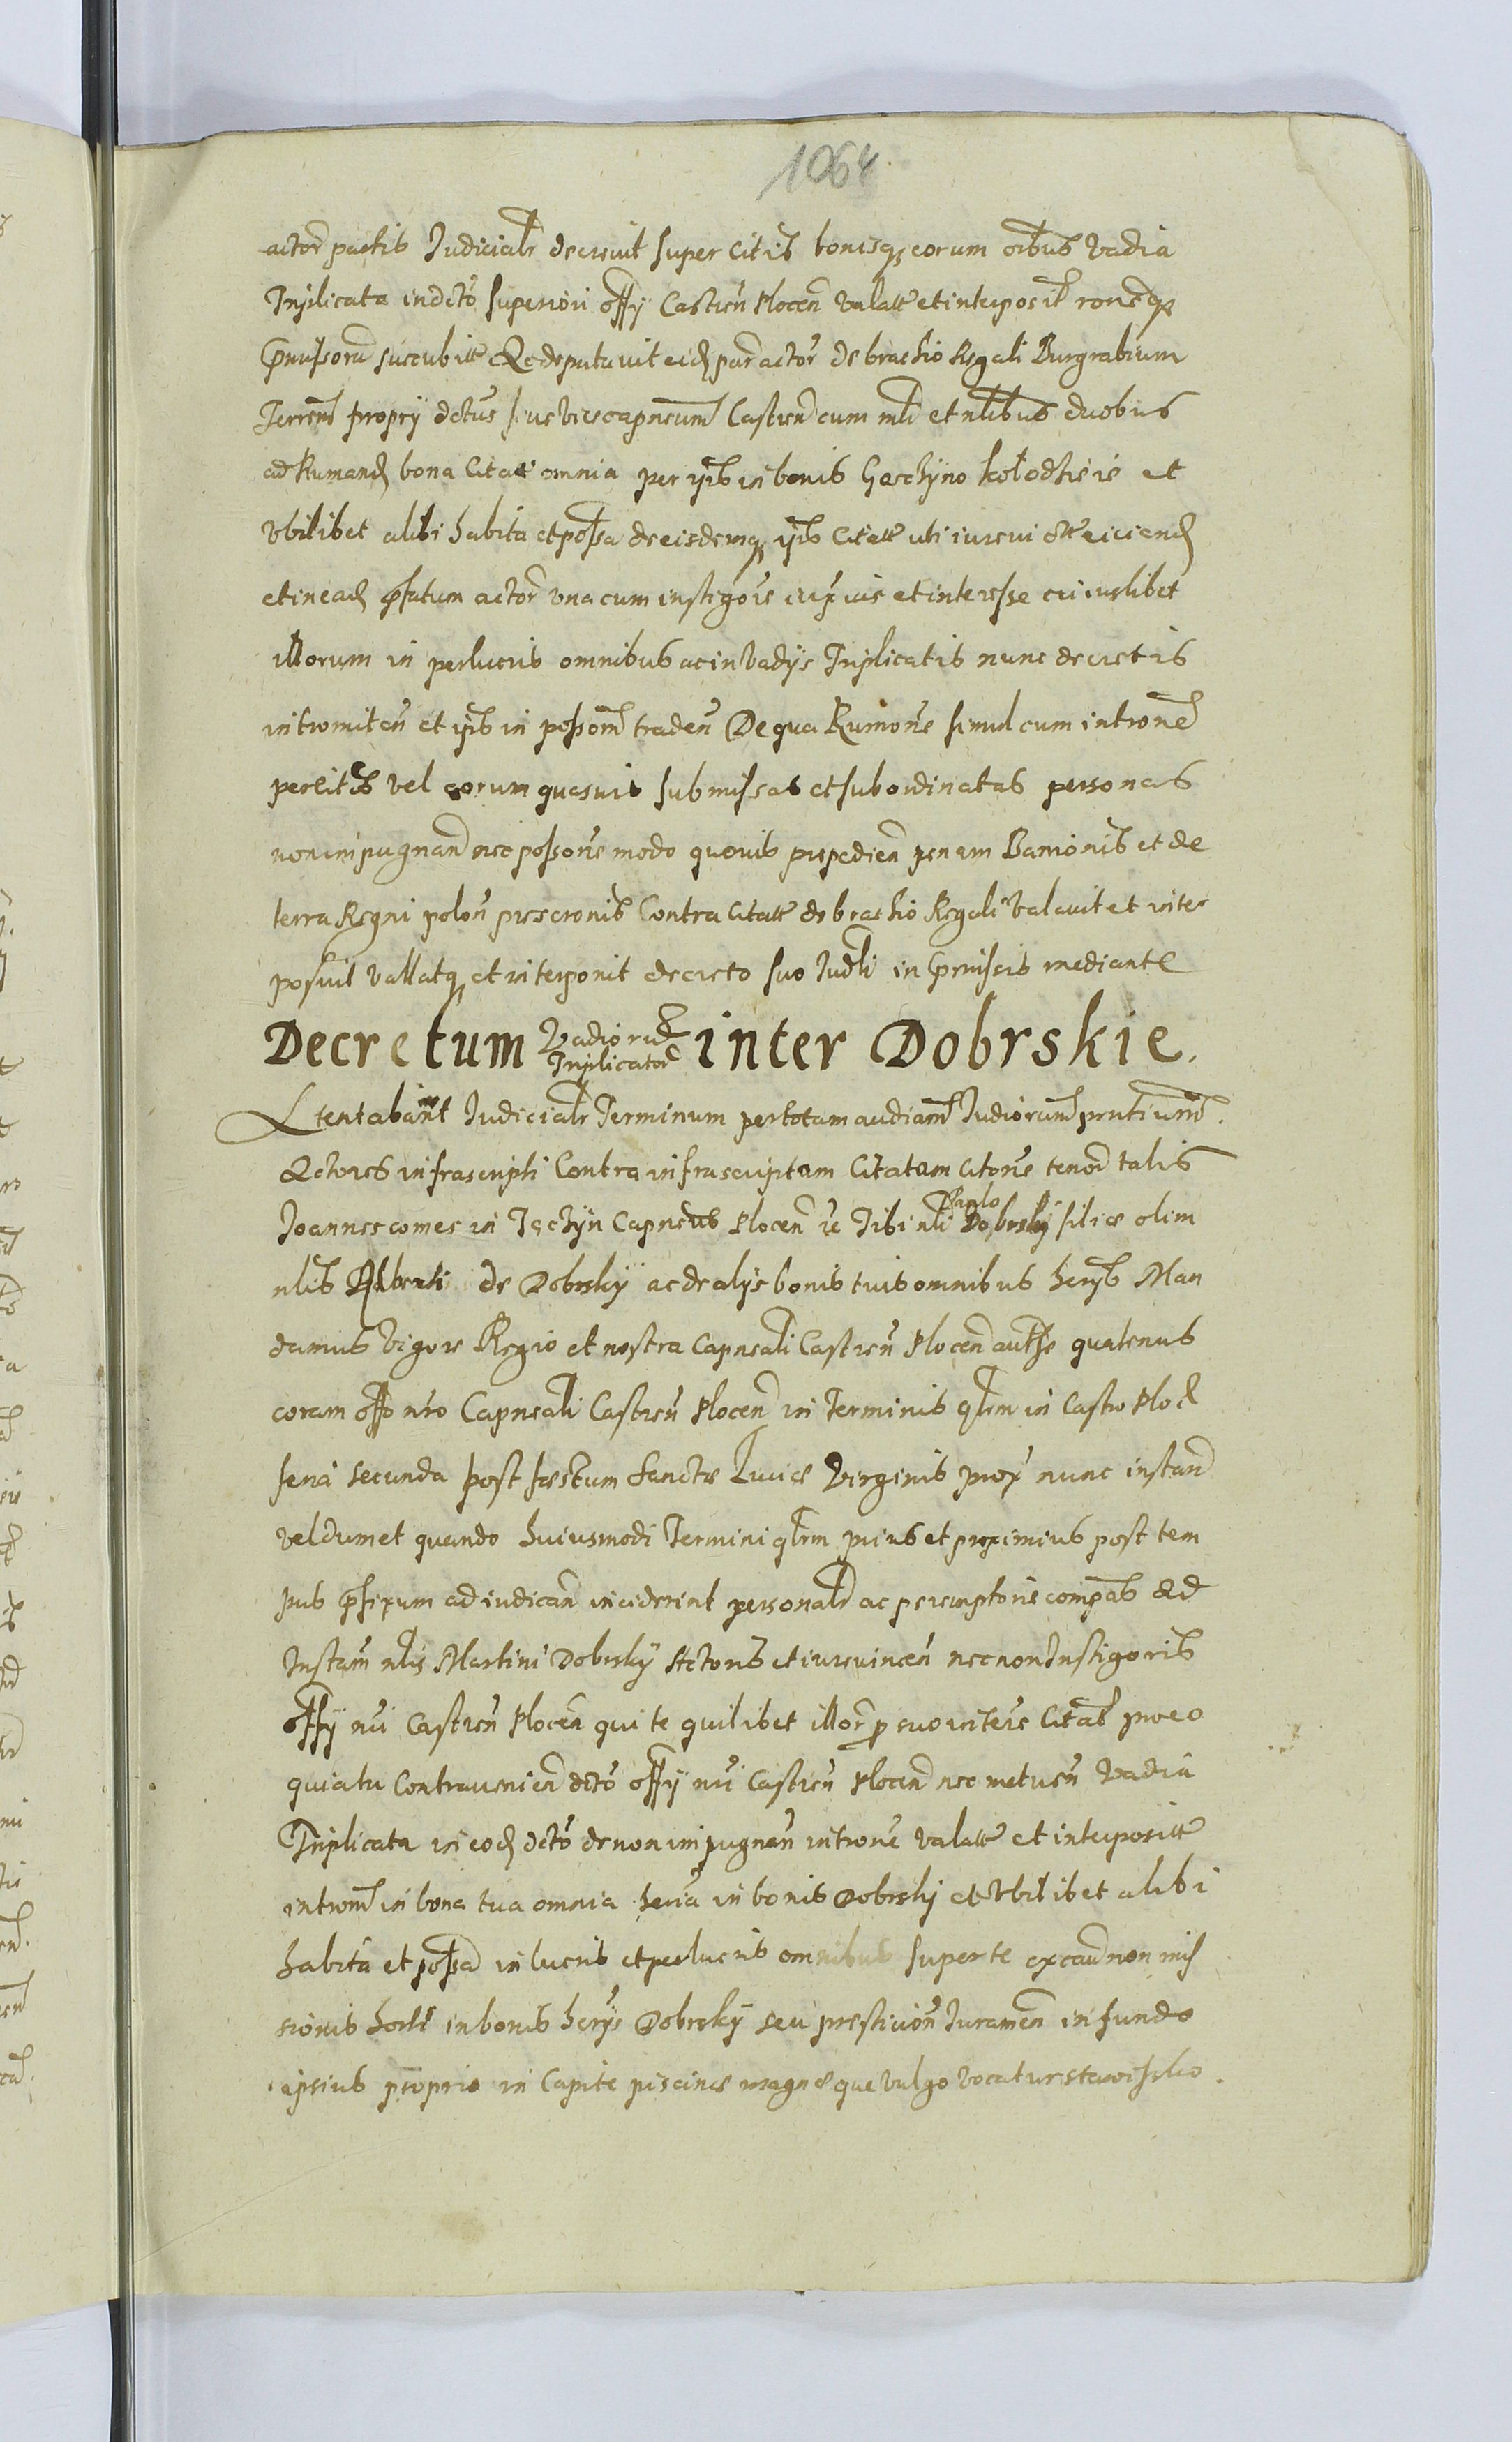 1064
actor partis Judicialr decrevit super citis bonisq eorum oibus vadia
Triplicata in dcto superiori offy Castren Plocen valatt et interposit rone
pmissoru succubitt Et deputavit eid par actor de brachio Regali Burgrabium
Terrem propry dctus seu vicecapneum Castren cum mli et nlibus duobus
ad Rumand bona Citati omnia per ysb in bonis Goczyno kolodzieie et
vbilibet alibi habita et possa de eisdemq ysb Citatt uti iurevictt eiciend
et in ead pfatum actor vna cum instigore iuxta vis et interesse cuiuslibet
illorum in perlucris omnibus ac in vadys Triplicatis nunc decretis
intromiten et ysb in possom traden De qua Rumone simul cum introne
per Citos vel eorum quasuis submissas et subordinatas personas
non impugnand nec possone modo quouis prepedien penam Banionis et de
terra Regni polon proscronis Contra Citatt de brachio Regali valavit et inter
posuit vallatq et interponit decreto suo Judli in pmissis mediante
Decretum vadioru Triplicator inter Dobrskie.
Attentabant Judicialr Terminum per totam audiam Judiorum pntium.
Actores infrascripti Contra infrascriptam Citatam Citone tenor talis
Joannes comes in Teczyn Capneus Plocen Tibi nli Paulo Dobrsky filio olim
nlis Alberti de Dobrsky ac de alys bonis tuis omnibus herys Man
damus vigore Regio et nostra Capneali Castren Plocen autte quatenus
coram offo nro Capneali Castren Plocen in Terminis qlrm in Castro Ploc
feria secunda post festum Sanctae Luciae Virginis prox nunc instan
vel dum et quando huiusmodi Termini qlrm prius et proximius post tem
pus pfixum ad iudican inciderint personalr ac peremptorie compas Ad
Instam nlis Martini Dobrsky Actoris et iurevincen nec non Instigoris
offy nri Castren Plocen qui te quilibet illor p suo interé Citat pro eo
quia tu Contravenien dcto offy nri Castren Plocen nec metuen vadia
Triplicata in eod dcto de non impugnan introne valatt et interpositt
introm in bona tua omnia heria in bonis Dobrsky et vbilibet alibi
habita et possa in lucris et perlucris omnibus super te ex cau non mis
sionis in bonis herys Dobrsky seu prestition Juramen in fundo
ipsius proprio in Capite piscinae magnae que vulgo vocatur stawisko.